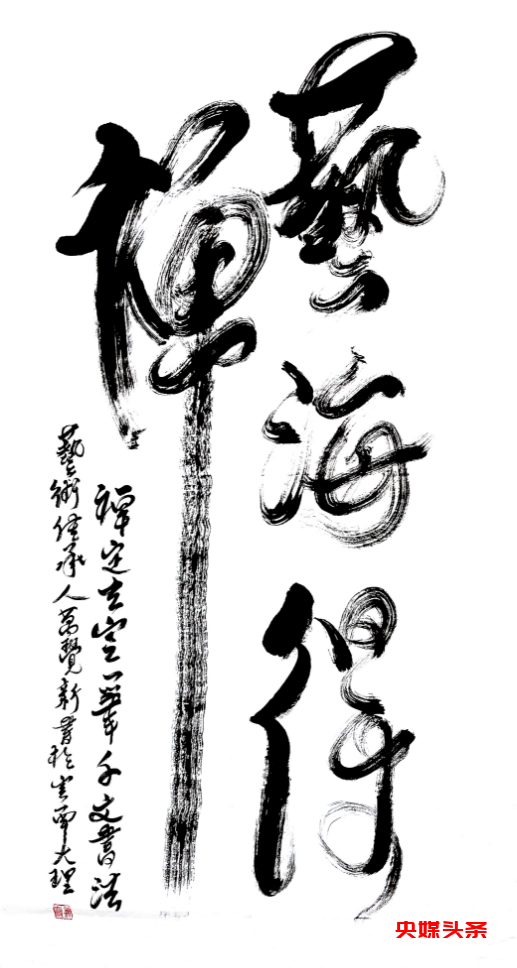 藝海得
禪
禪定空一筆千文書法
藝術傳承人萬覺新書於雲南大理
央媒头条